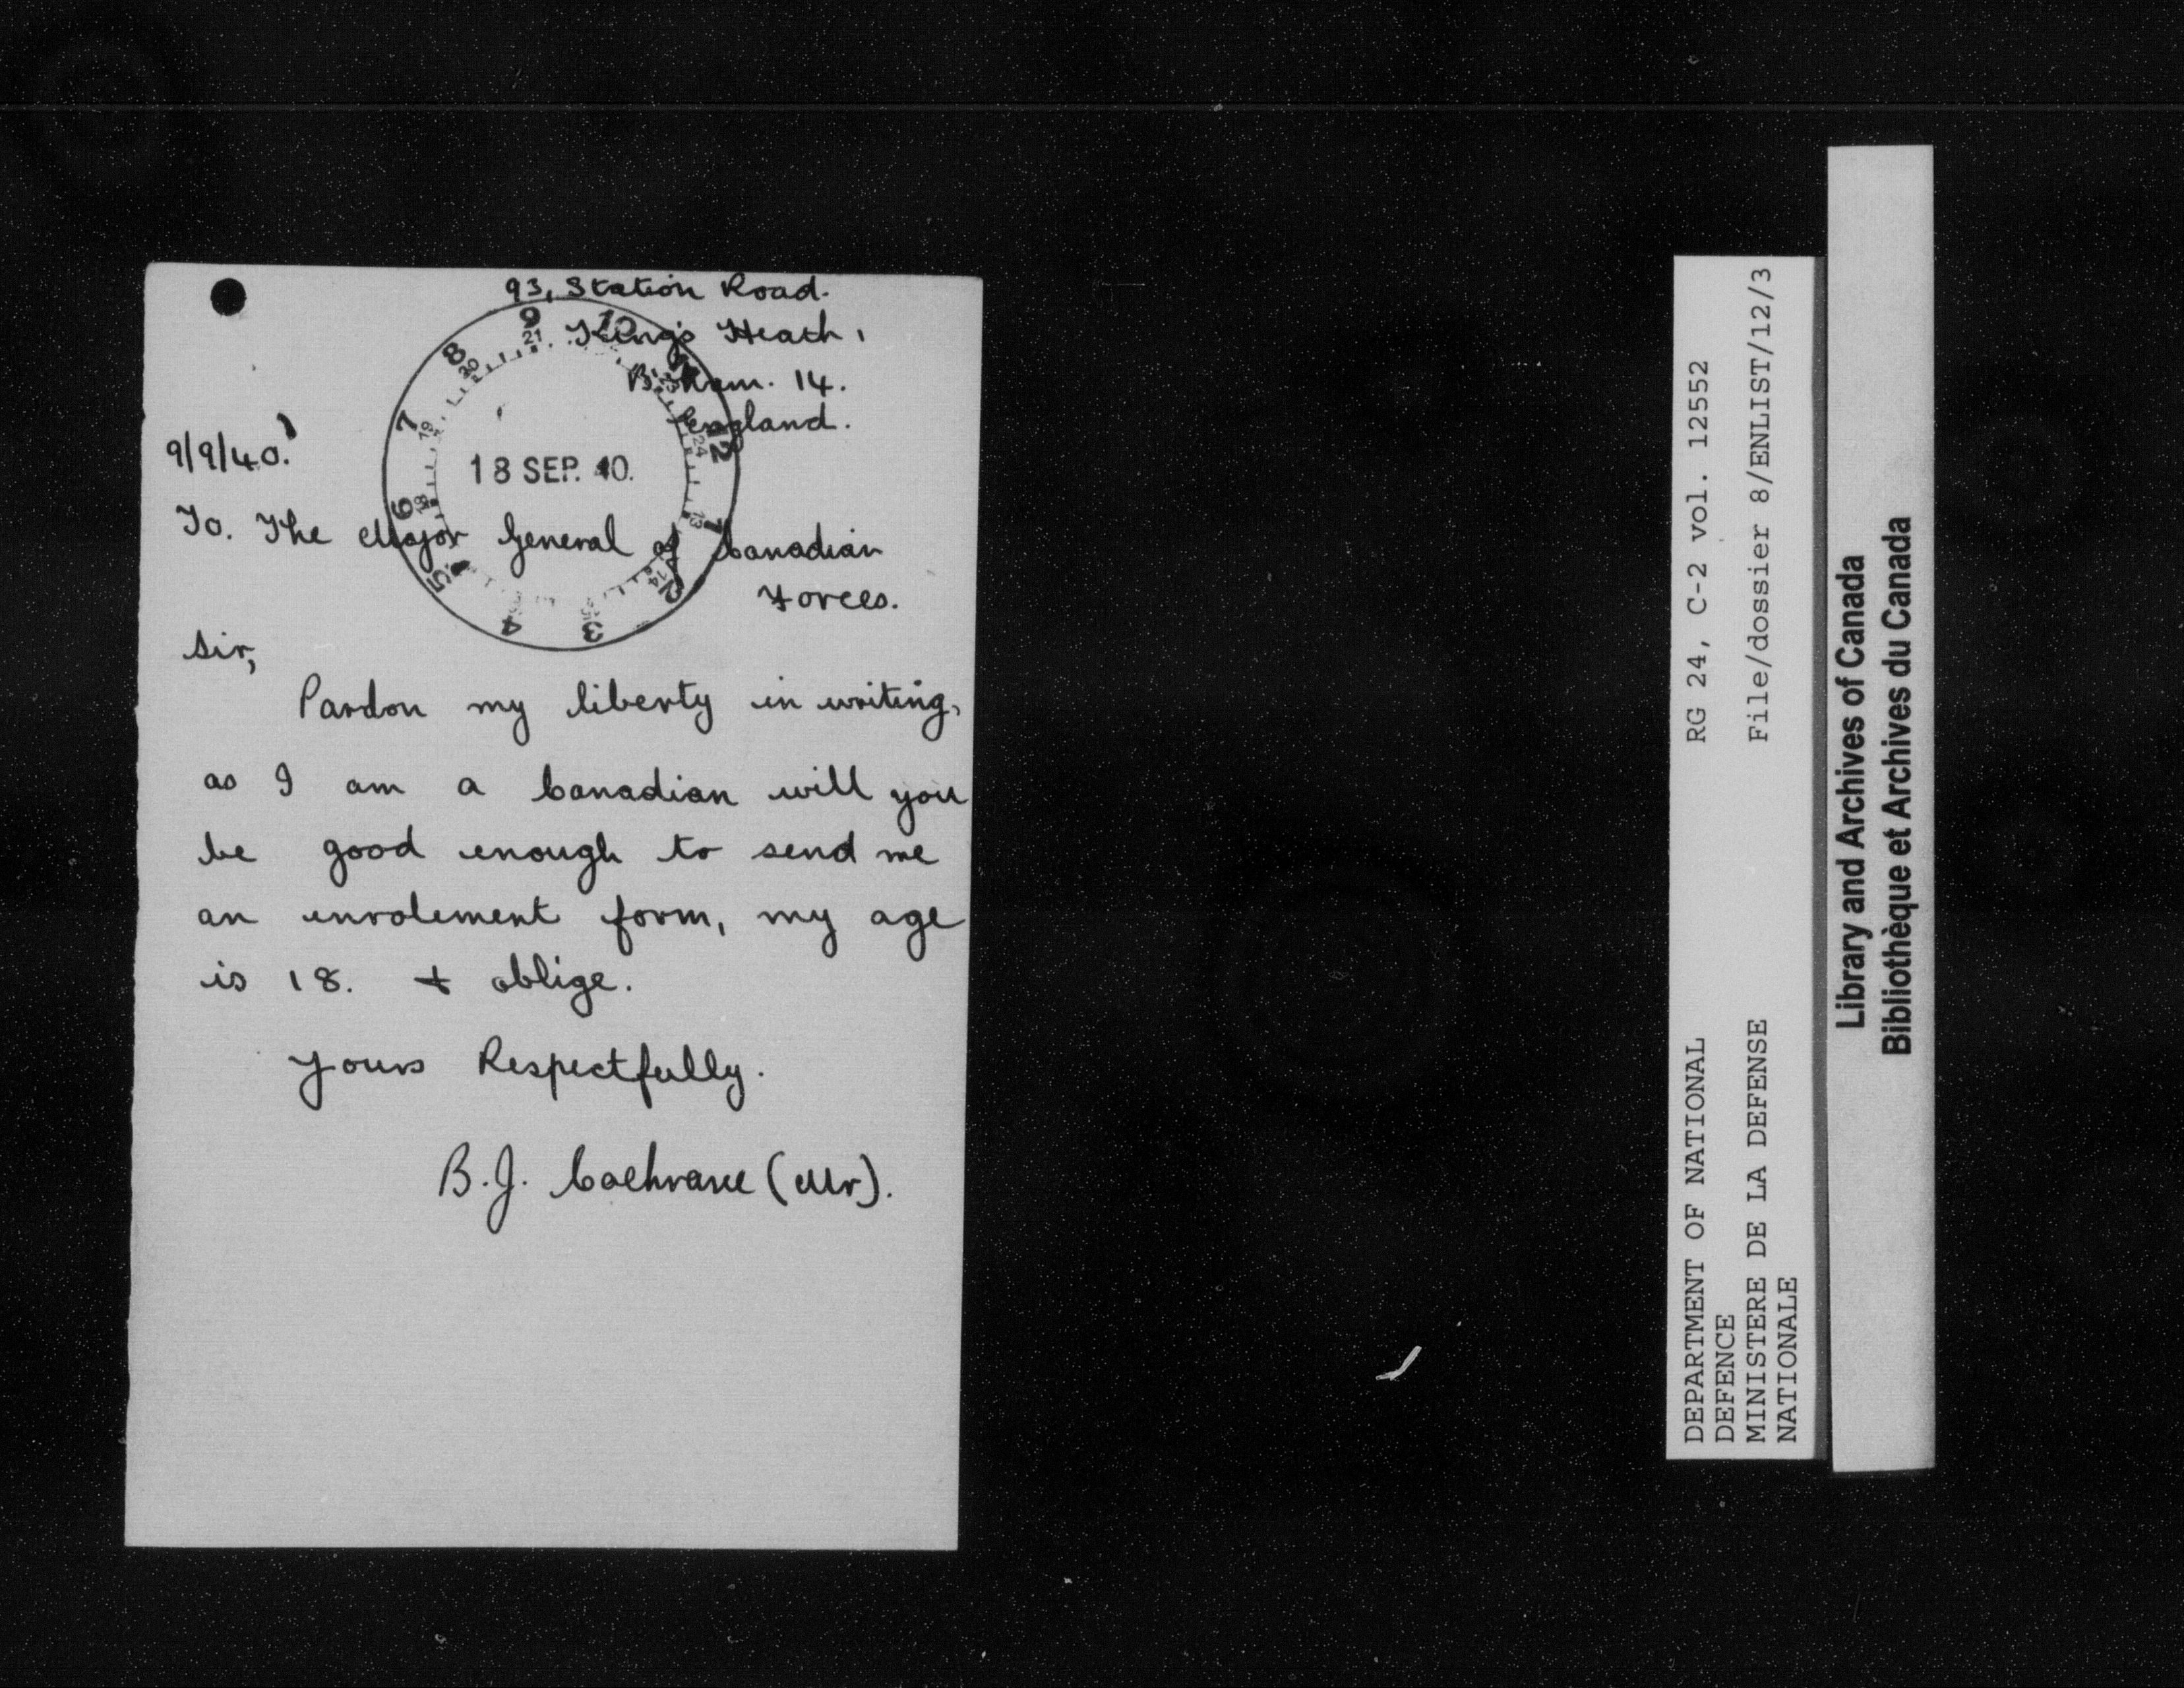 93, Station Road.
King's Heath,
B'ham. 14.
England.
9/9/40.
18 SEP. 40.
To. The Major General of Canadian
Forces.
Sir,
Pardon my liberty in writing,
as I am a Canadian will you
be good enough to send me
an enrolement form, my age
is 18. + oblige.
Yours Respectfully.
B.J. Cochrane (Mr).
9 10 12 1 2 3 4 5 6 7 8
21 24 13 14 18 19 20
DEPARTMENT OF NATIONAL
DEFENCE
MINISTERE DE LA DEFENSE
NATIONALE
RG 24, C-2 vol. 12552
File/dossier 8/ENLIST/12/3
Library and Archives of Canada
Bibliothèque et Archives du Canada